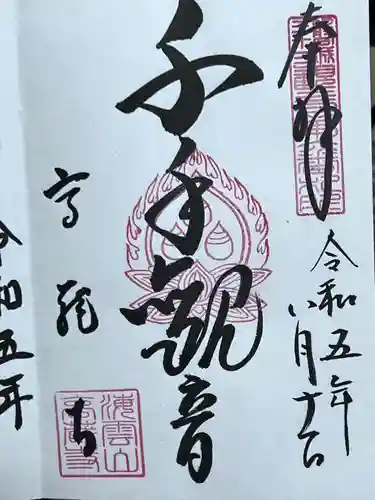 奉拝
令和五年
八月十一日
千手観音
高龍寺
海雲山
令和五年